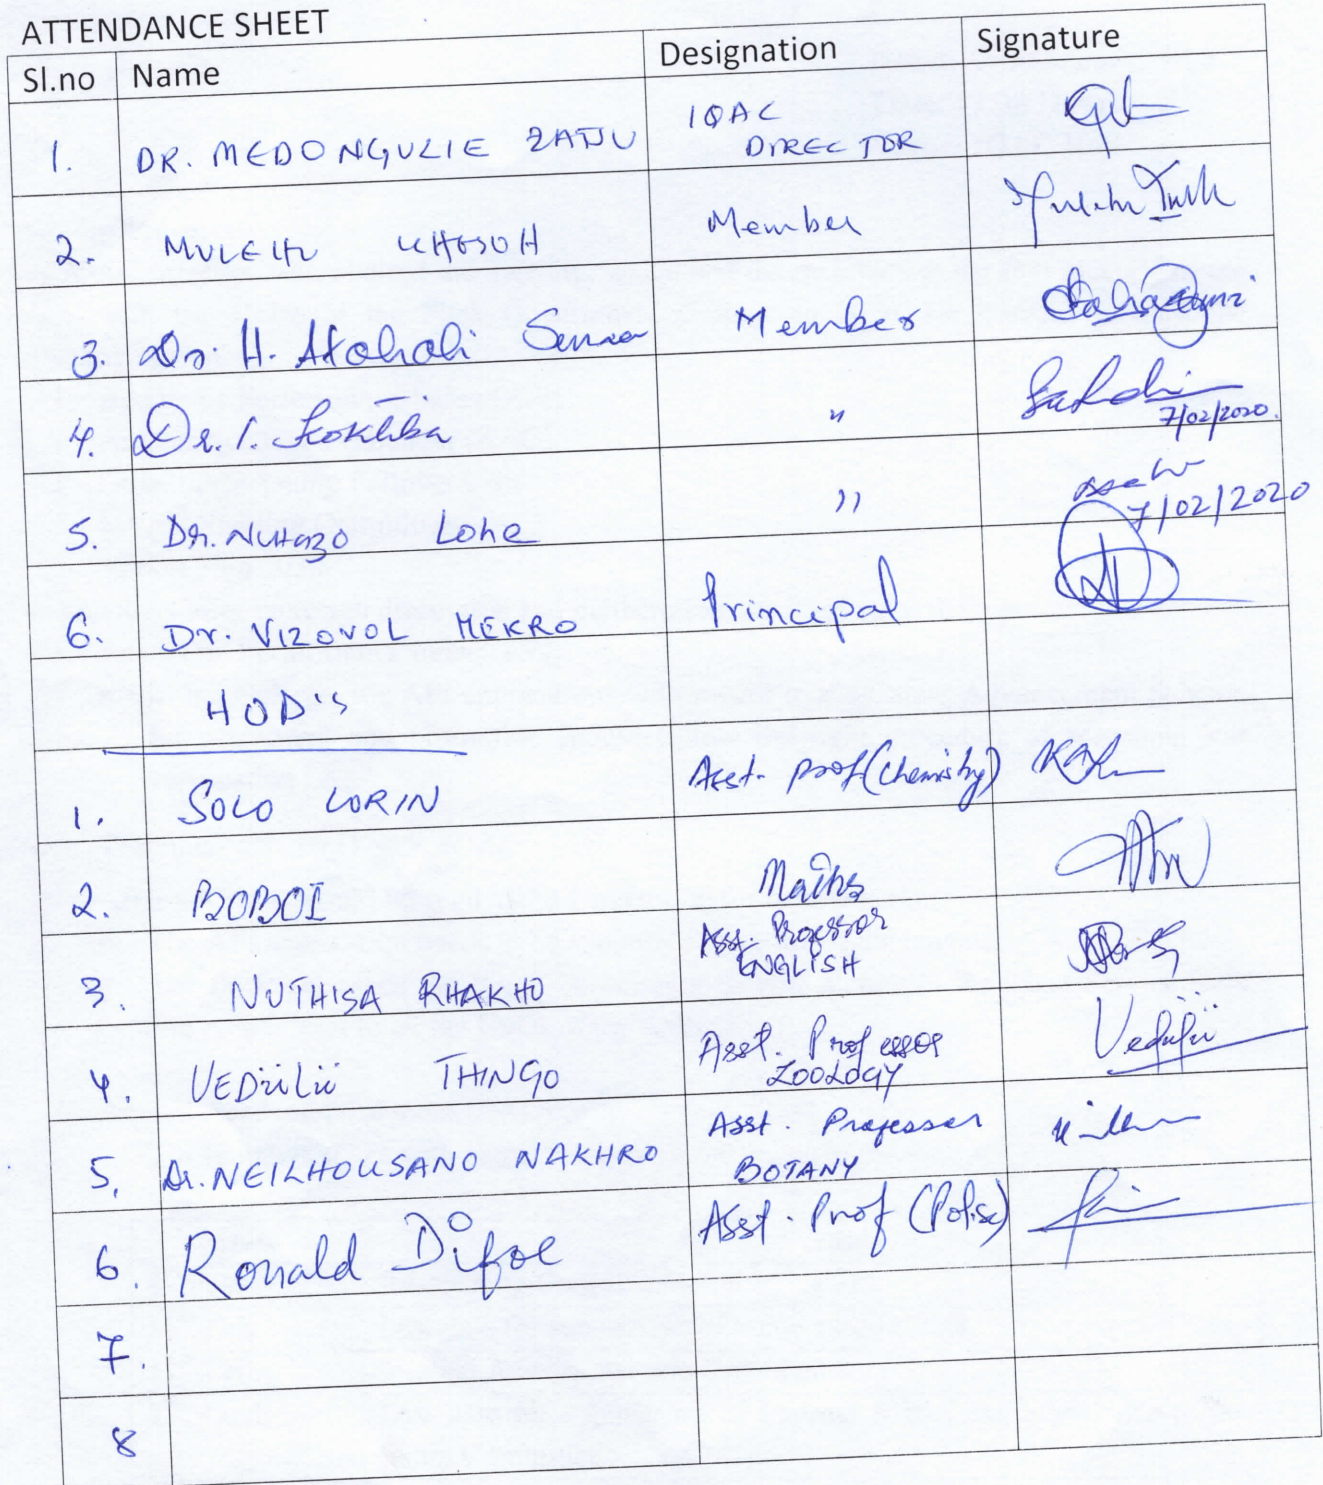 ATTENDANCE SHEET
Sl.no Name Designation Signature
1. DR. MEDONGULIE ZATSU IQAC
DIRECTOR
2. MULEHU KHESOH Member
3. Dr. H. Atoholi Member
4. Dr. I. "
7/02/2020.
5. Dr. Nuhazo Lohe "
7/02/2020
6. Dr. VIZOVOL MEKRO Principal
HOD's
1. SOLO LORIN Asst. prof (Chemistry)
2. BOBOI Maths
3. NUTHISA RHAKHO Asst. Professor
ENGLISH
4. VEDÜLÜ THINGO Asst. Professor
ZOOLOGY
Vedülü
5. Dr. NEILHOUSANO NAKHRO Asst. Professor
BOTANY
6. Ronald Difoe Asst. Prof (Pol.sc)
7.
8